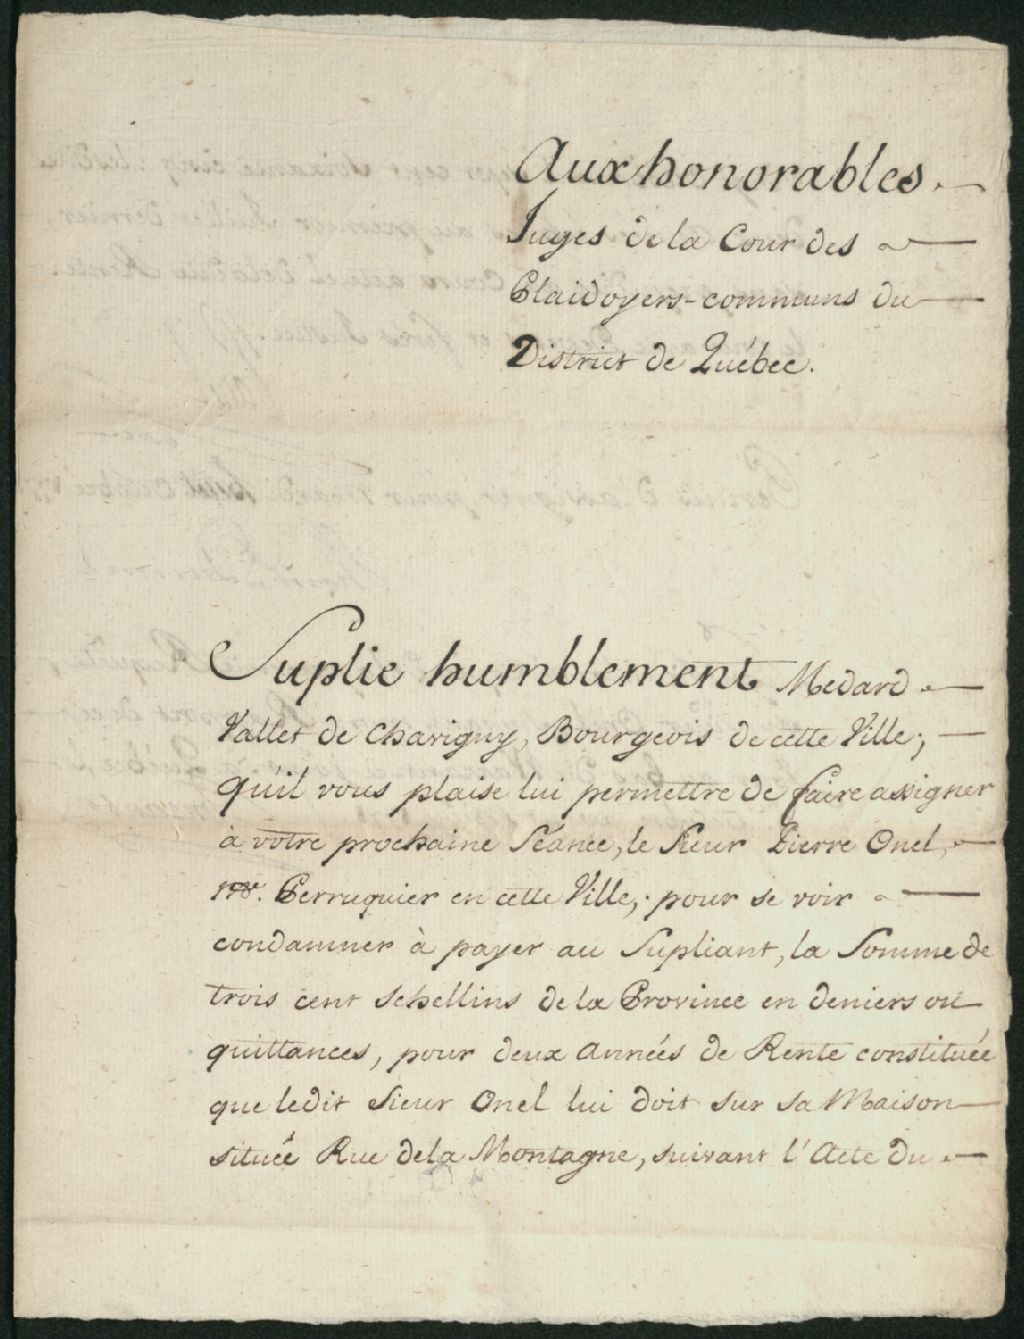 Aux honorables
Juges de la Cour des
Plaidoyers-communs du
District de Québec.
Suplie humblement Medard
Vallet de Chavigny, Bourgeois de cette Ville;
qu'il vous plaise lui permettre de faire assigner
à votre prochaine Séance, le Sieur Pierre Onel,
Perruquier en cette Ville; pour se voir
condamner à payer au Supliant, la Somme de
trois cent Schellins de la Province en deniers ou
quittances, pour deux années de Rente constituée
que ledit Sieur Onel lui doit sur sa Maison
située Rue de la Montagne, suivant l'Acte du